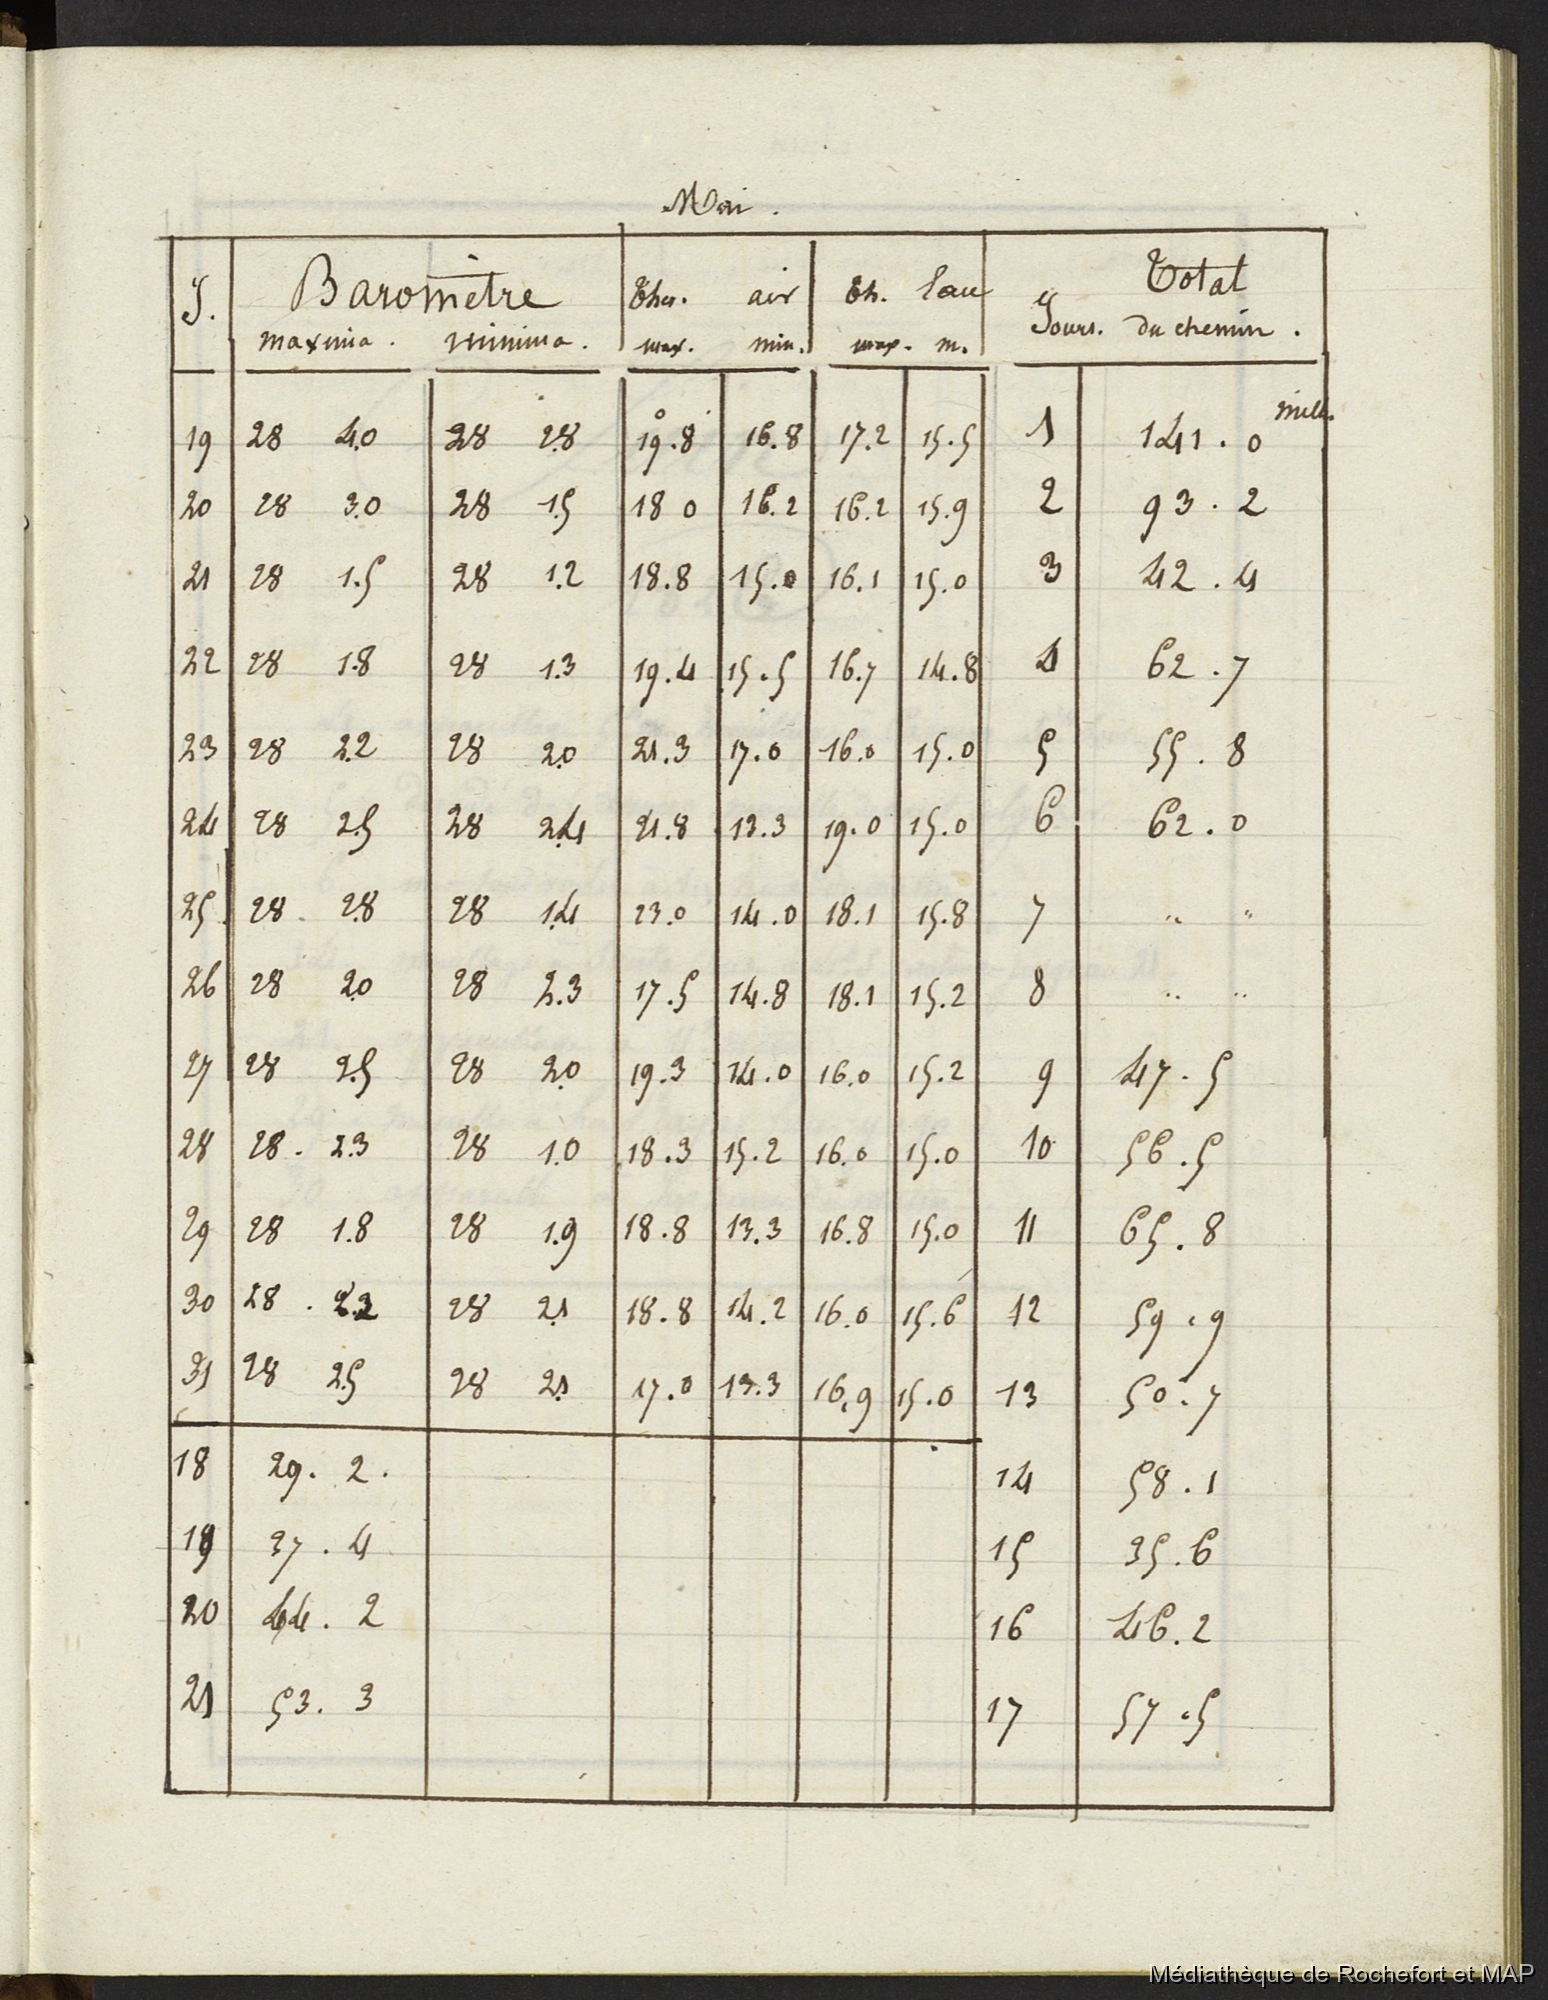 Mai.
J. Baromètre Ther. air Th. l'eau Jours. Total
maxima. minima. max. min. max. m. du chemin.
19 28 4.0 28 2.8 19°.8 16.8 17.2 15.5 1 141.0 mill.
20 28 3.0 28 1.5 18 0 16.2 16.2 15.9 2 93.2
21 28 1.5 28 1.2 18.8 15.0 16.1 15.0 3 42.4
22 28 1.8 28 1.3 19.4 15.5 16.7 14.8 4 62.7
23 28 2.2 28 2.0 21.3 17.0 16.0 15.0 5 55.8
24 28 2.5 28 2.4 21.8 13.3 19.0 15.0 6 62.0
25. 28. 2.8 28 1.4 23.0 14.0 18.1 15.8 7 " "
26 28 2.0 28 2.3 17.5 14.8 18.1 15.2 8 " "
27 28 2.5 28 2.0 19.3 14.0 16.0 15.2 9 47.5
28 28. 2.3 28 1.0 18.3 15.2 16.0 15.0 10 56.5
29 28 1.8 28 1.9 18.8 13.3 16.8 15.0 11 65.8
30 28. 28 2.1 18.8 14.2 16.0 15.6 12 59.9
31 28 2.5 28 2.1 17.0 13.3 16.9 15.0 13 50.7
18 29.2. 14 58.1
19 37.4 15 35.6
20 44.2 16 46.2
21 53.3 17 57.5
Médiathèque de Rochefort et MAP